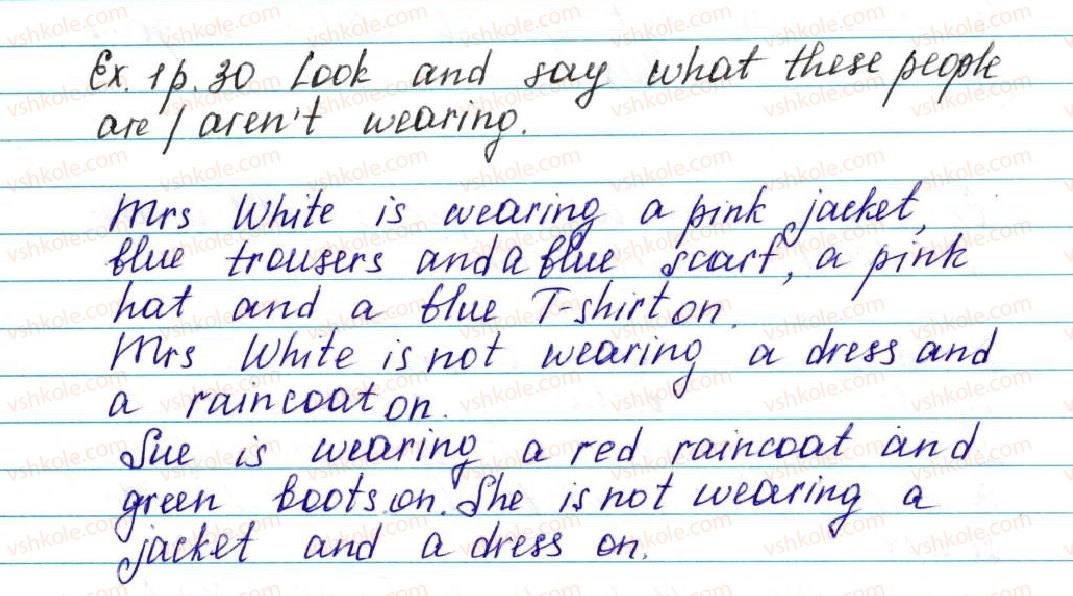 Ex. 1 p. 30 Look and say what these people
are / aren't wearing.
Mrs White is wearing a pink jacket,
blue trousers and a blue scarf, a pink
hat and a blue T-shirt on.
Mrs White is not wearing a dress and
a raincoat on.
Sue is wearing a red raincoat and
green boots on. She is not wearing a
jacket and a dress on.